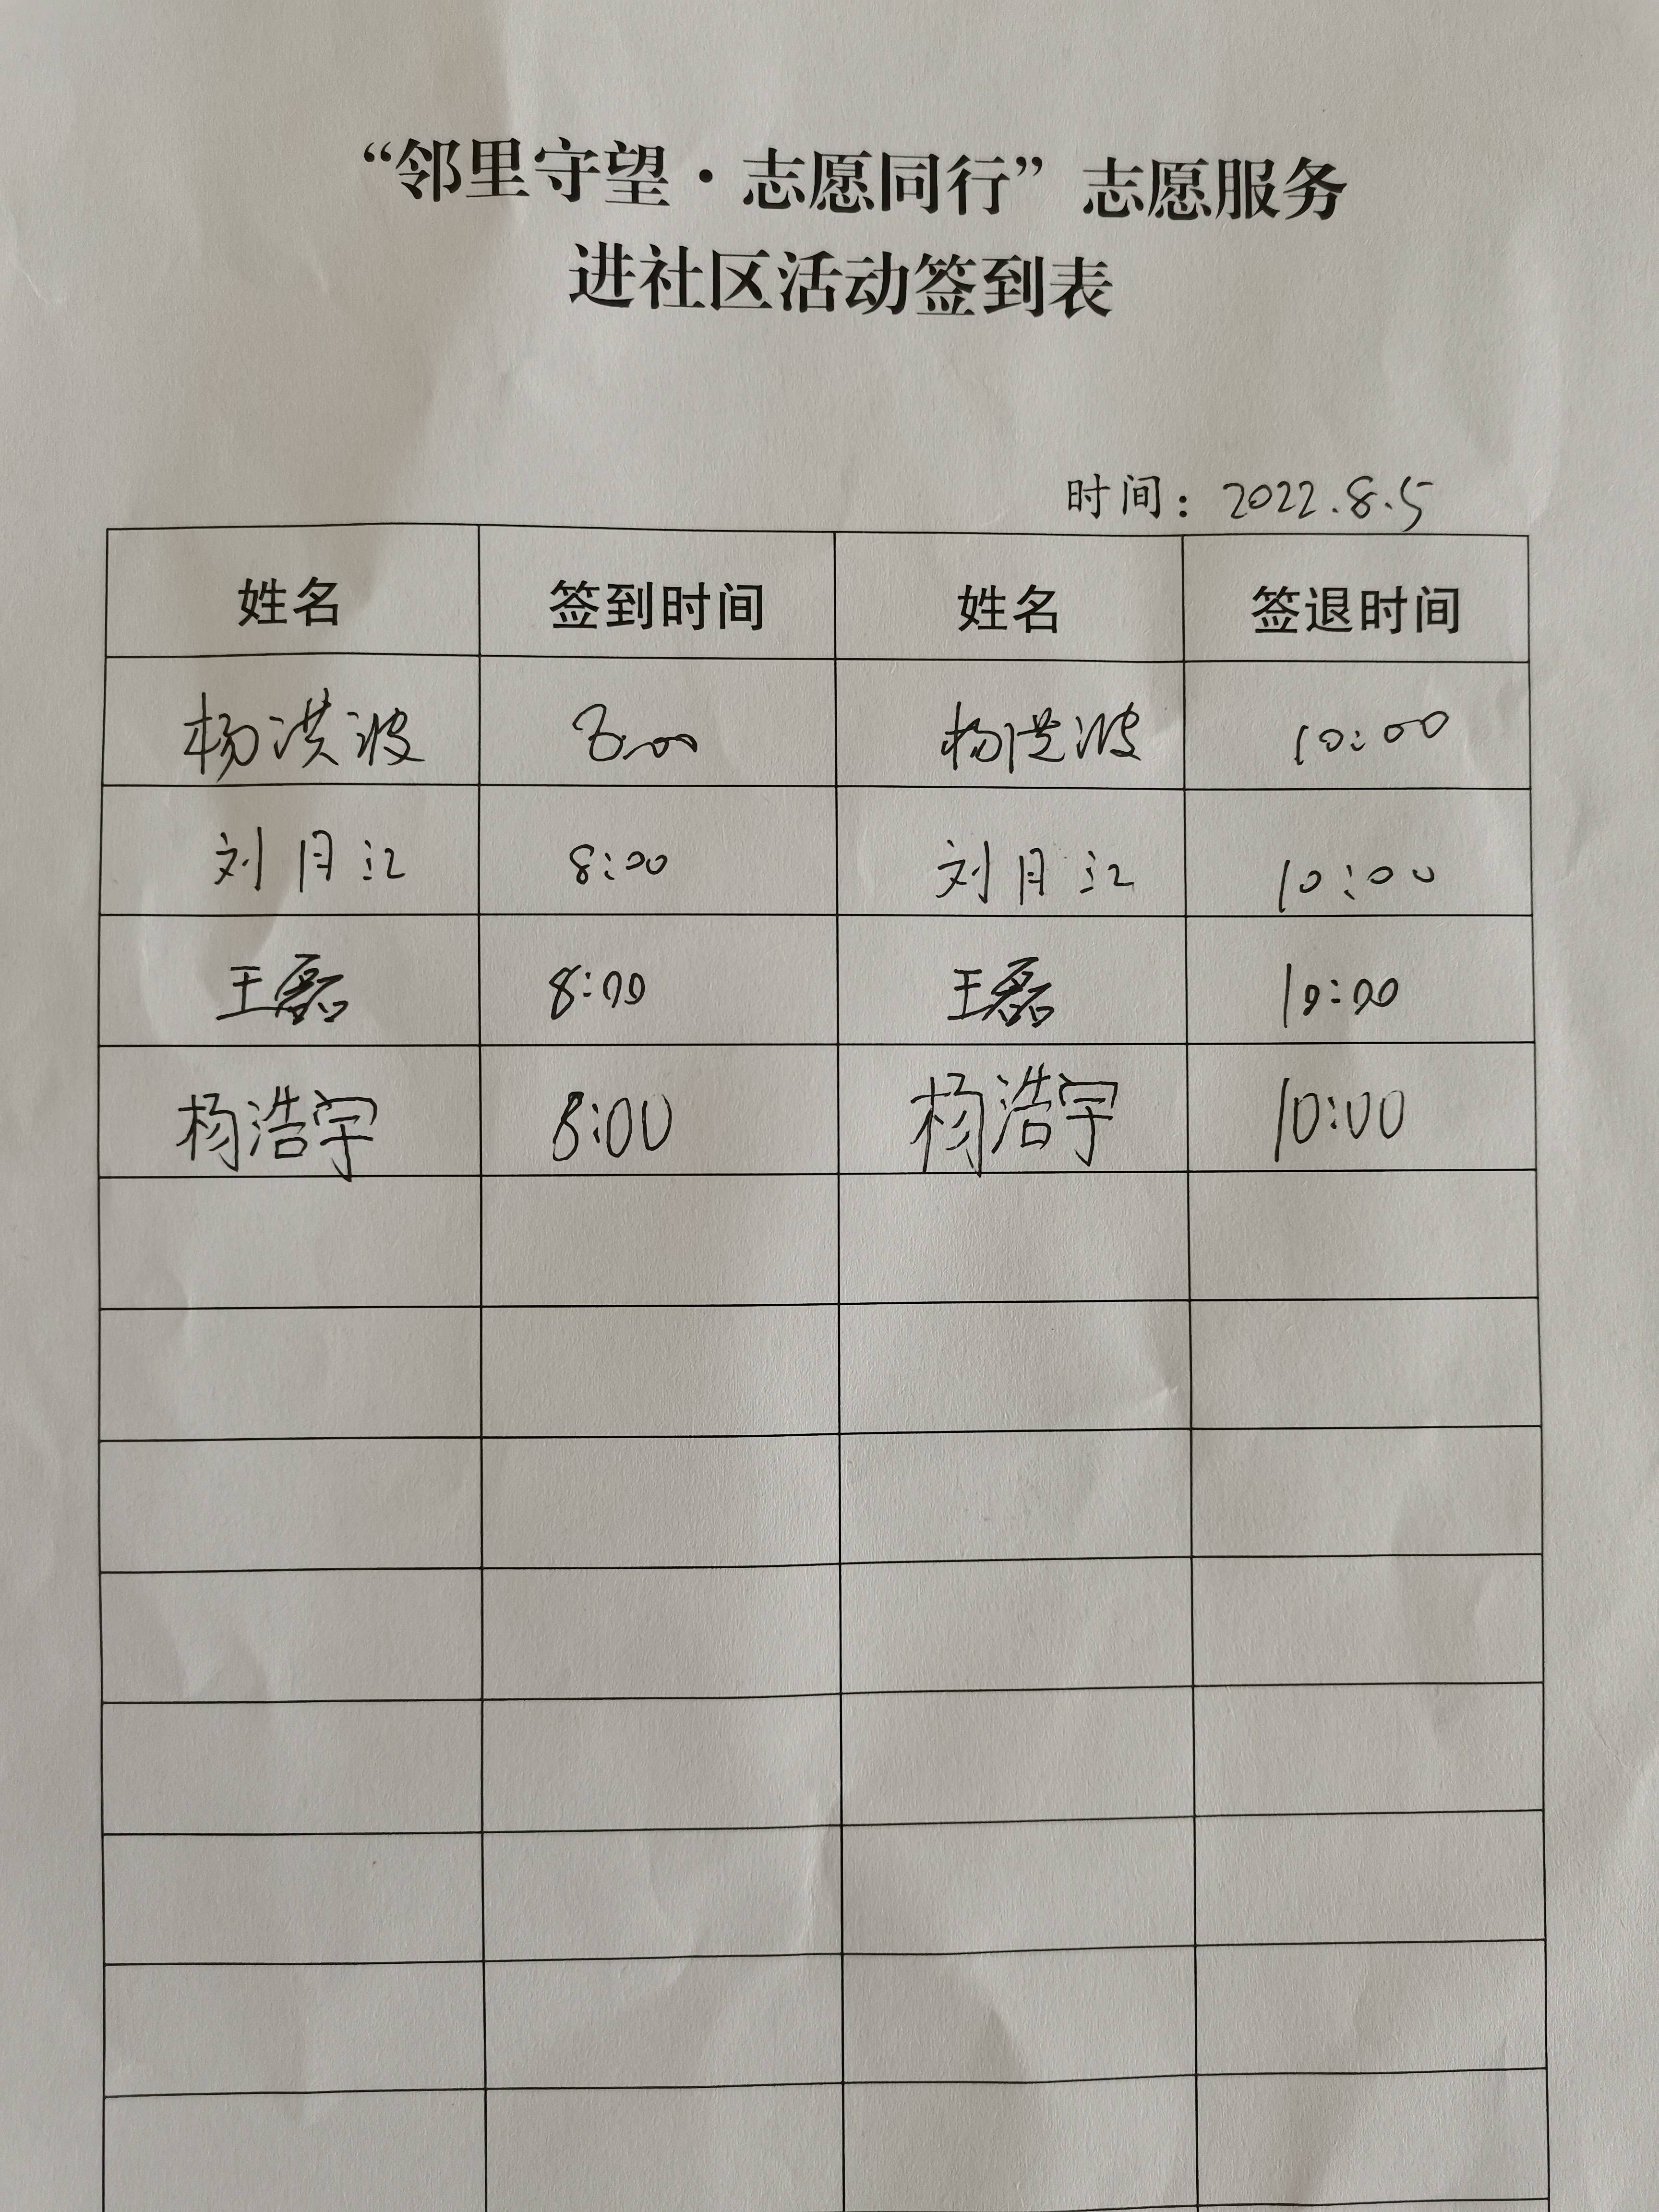 “邻里守望·志愿同行”志愿服务
进社区活动签到表
时间：2022.8.5
姓名 签到时间 姓名 签退时间
杨洪波 8:00 杨洪波 10:00
刘月江 8:00 刘月江 10:00
王磊 8:00 王磊 10:00
杨浩宇 8:00 杨浩宇 10:00